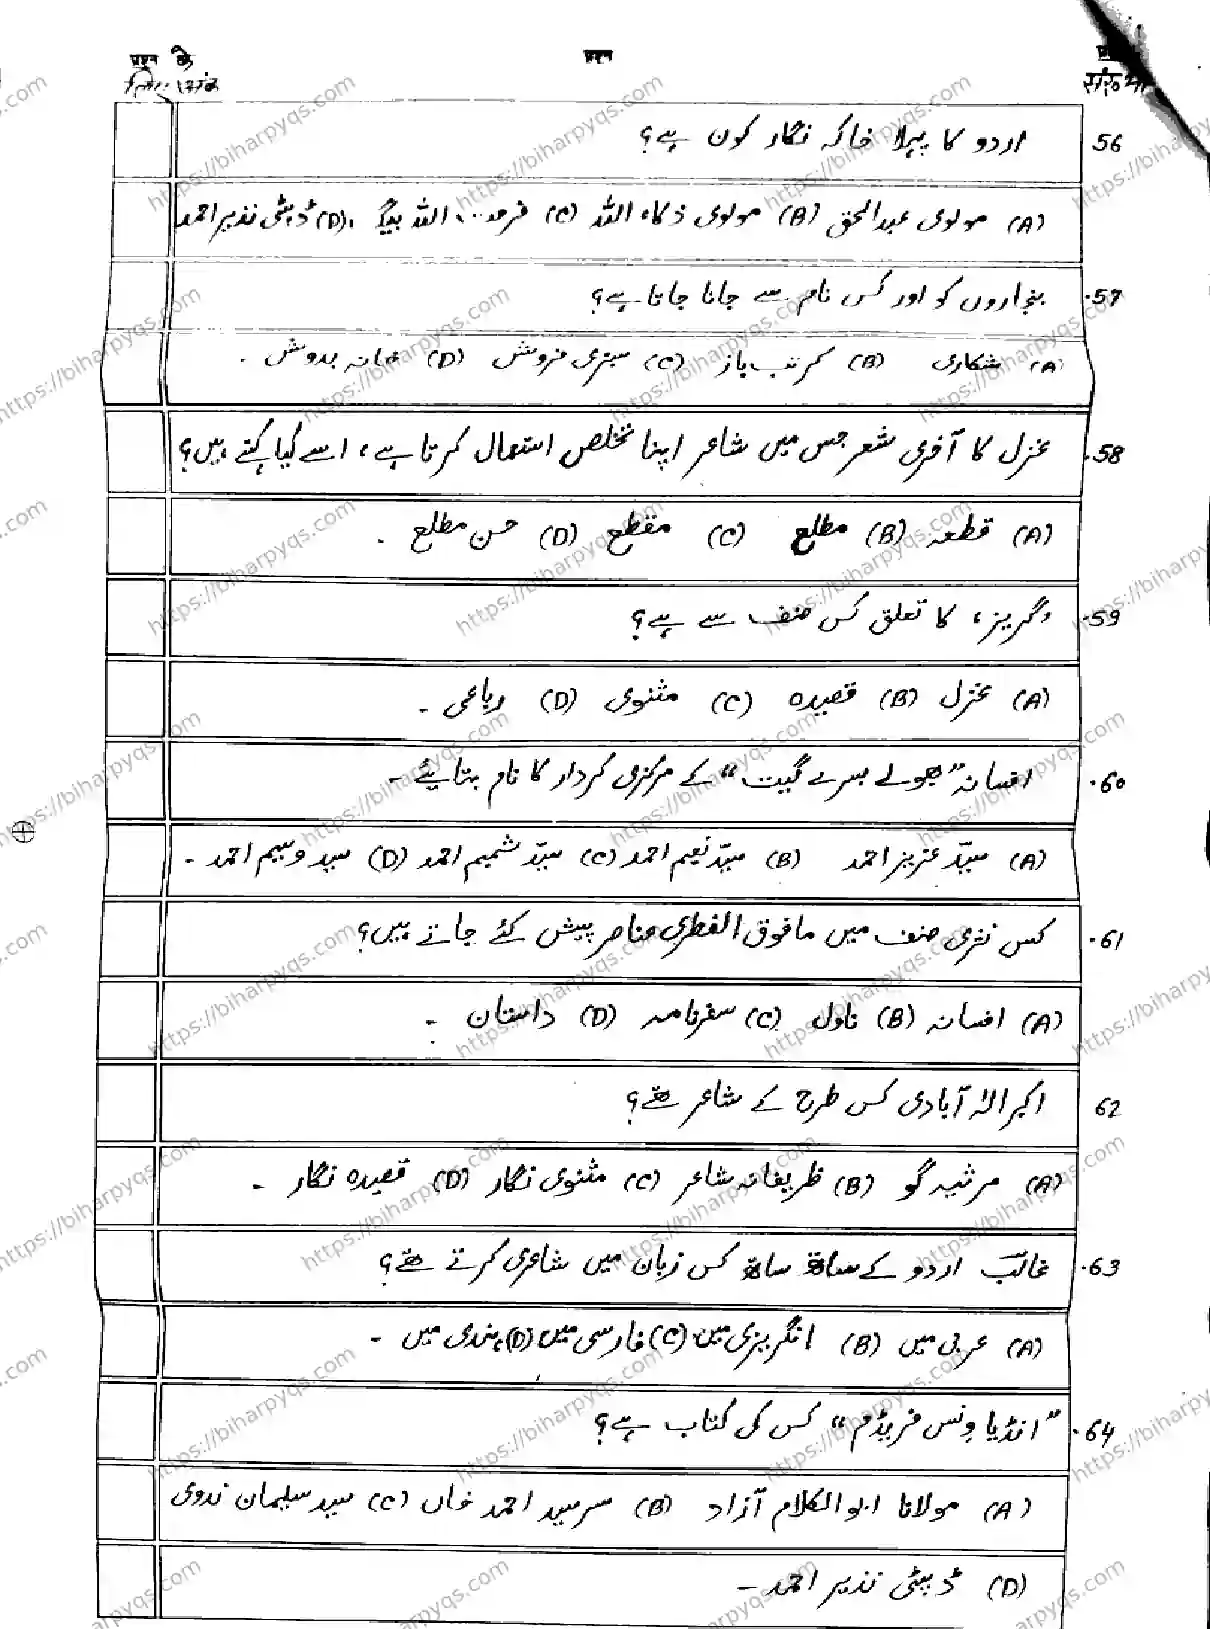 प्रश्न के प्रश्न
लिए अंक
56 اردو کا پہلا خاکہ نگار کون ہے؟
(A) مولوی عبدالحق (B) مولوی ذکاء اللہ (C) فرحت اللہ بیگ (D) ڈپٹی نذیر احمد
57. بنجاروں کو اور کس نام سے جانا جاتا ہے؟
(A) شکاری (B) کرتب باز (C) سبزی فروش (D) خانہ بدوش ۔
58. غزل کا آخری شعر جس میں شاعر اپنا تخلص استعمال کرتا ہے، اسے کیا کہتے ہیں؟
(A) قطعہ (B) مطلع (C) مقطع (D) حسن مطلع ۔
59. ’گریز‘ کا تعلق کس صنف سے ہے؟
(A) غزل (B) قصیدہ (C) مثنوی (D) رباعی ۔
60. افسانہ ”بھولے بسرے گیت“ کے مرکزی کردار کا نام بتایئے ۔
(A) سیّد عزیز احمد (B) سیّد نعیم احمد (C) سیّد شمیم احمد (D) سید وسیم احمد ۔
61. کس نثری صنف میں مافوق الفطری عناصر پیش کئے جاتے ہیں؟
(A) افسانہ (B) ناول (C) سفرنامہ (D) داستان ۔
62 اکبر الٰہ آبادی کس طرح کے شاعر تھے؟
(A) مرثیہ گو (B) ظریفانہ شاعر (C) مثنوی نگار (D) قصیدہ نگار ۔
63. غالب اردو کے ساتھ ساتھ کس زبان میں شاعری کرتے تھے؟
(A) عربی میں (B) انگریزی میں (C) فارسی میں (D) ہندی میں ۔
64. ”انڈیا ونس فریڈم“ کس کی کتاب ہے؟
(A) مولانا ابوالکلام آزاد (B) سرسید احمد خاں (C) سید سلیمان ندوی
(D) ڈپٹی نذیر احمد ۔
https://biharpyqs.com